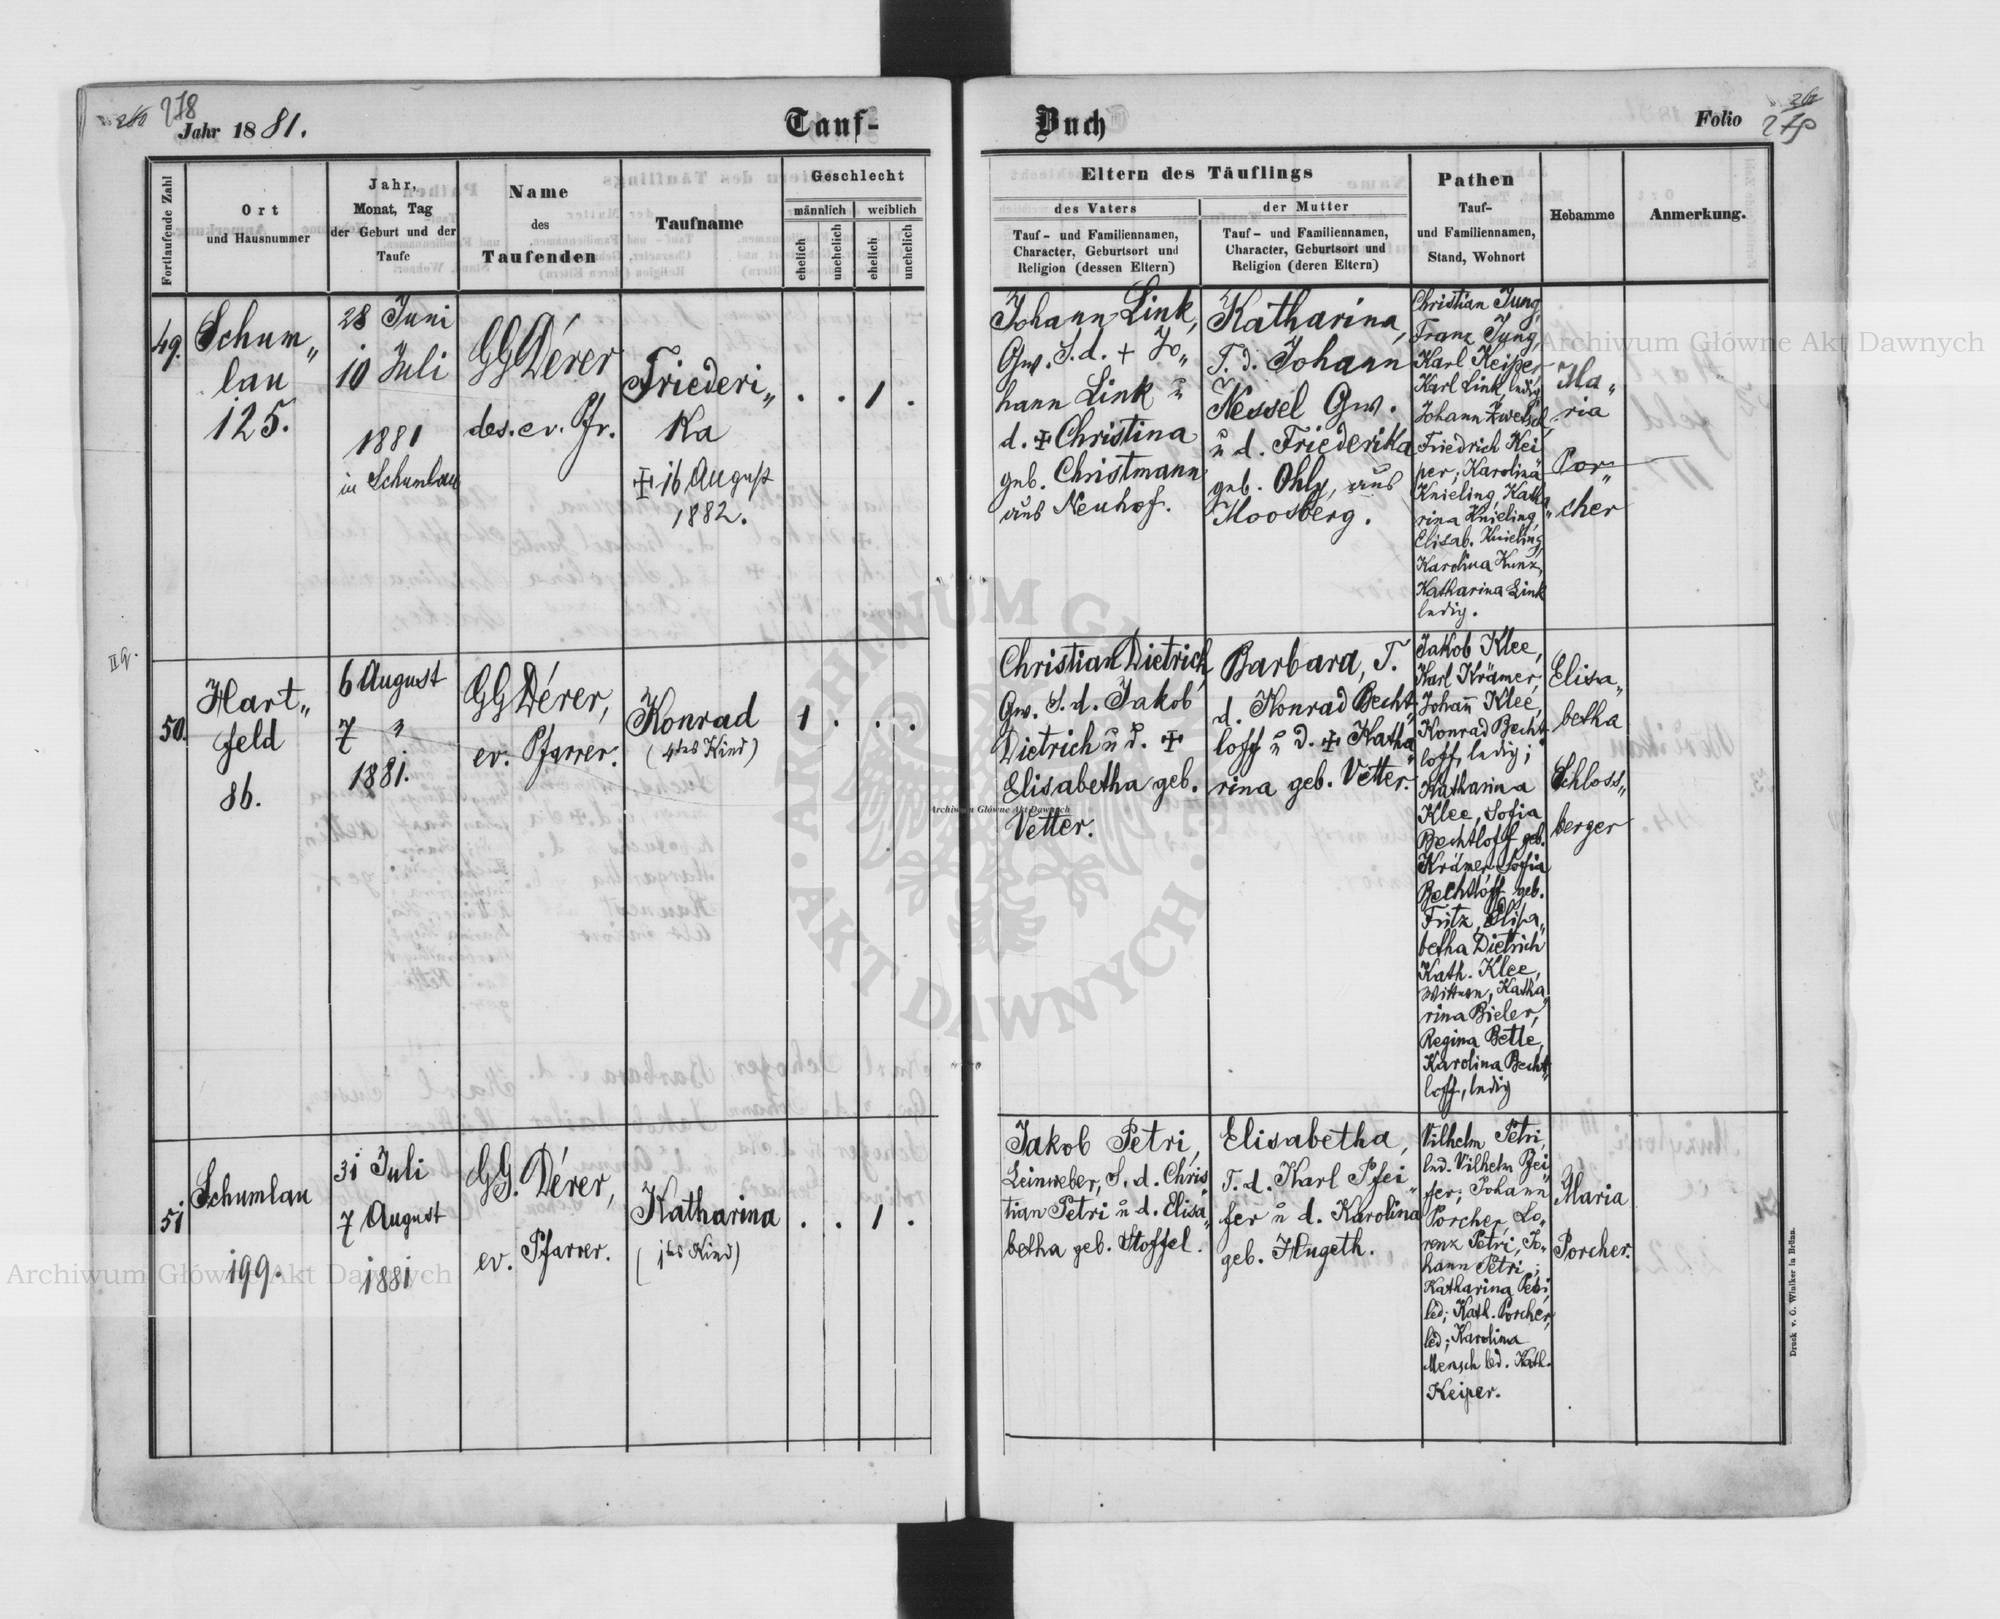 278
Jahr 1881.
Tauf-
Buch
Folio
Fortlaufende Zahl
Ort
und Hausnummer
Jahr,
Monat, Tag
der Geburt und der
Taufe
Name
des
Taufenden
Taufname
Geschlecht
männlich
weiblich
ehelich
unehelich
ehelich
unehelich
Eltern des Täuflings
des Vaters
Tauf- und Familiennamen,
Character, Geburtsort und
Religion (dessen Eltern)
der Mutter
Tauf- und Familiennamen,
Character, Geburtsort und
Religion (deren Eltern)
Pathen
Tauf-
und Familiennamen,
Stand, Wohnort
Hebamme
Anmerkung.
49.
Schum„
lau
125.
28 Juni
10 Juli
1881
in Schumlau
GGDérer
des. ev. Pfr.
Friederi„
ka
‡ 16 August
1882.
. . 1 .
Johann Link,
Gw. S. d. + Jo„
hann Link u
d. ‡ Christina
geb. Christmann
aus Neuhof.
Katharina,
T. d. Johann
Nessel Gw.
u d. Friederika
geb. Ohly, aus
Moosberg.
Christian Jung,
Franz Jung,
Karl Keiper
Karl Link, ledig
Johann Zwetsel,
Friedrich Kei
per; Karolina
Knieling, Katha
rina Knieling,
Elisab. Knieling,
Karolina Kunz,
Katharina Link
ledig.
Ma„
ria
Por„
cher
50.
Hart„
feld
86.
6 August
7 "
1881.
GGDérer,
ev. Pfarrer.
Konrad
(4tes Kind)
1 . . .
Christian Dietrich,
Gw. S. d. Jakob
Dietrich u d. ‡
Elisabetha geb.
Vetter.
Barbara, T.
d. Konrad Becht„
loff u d. ‡ Katha„
rina geb. Vetter.
Jakob Klee,
Karl Krämer,
Johann Klee,
Konrad Becht
loff, ledig;
Katharina
Klee, Sofia
Bechtloff geb.
Krämer. Sofia
Bechtloff geb.
Fritz, Elisa„
betha Dietrich
Kath. Klee,
Wittwen, Katha
rina Bieler,
Regina Betle,
Karolina Becht„
loff, ledig
Elisa„
betha
Schloss„
berger
51
Schumlau
199.
31 Juli
7 August
1881
GG. Dérer,
ev. Pfarrer.
Katharina
(1tes Kind)
. . 1 .
Jakob Petri,
Leinweber, S. d. Chris„
tian Petri u d. Elisa„
betha geb. Stoffel.
Elisabetha,
T. d. Karl Pfei„
fer u d. Karolina
geb. Hugeth.
Vilhelm Petri,
led. Vilhelm Pfei
fer; Johann
Porcher, Lo„
renz Petri, Jo„
hann Petri;
Katharina Petri,
led; Kath. Porcher,
led; Karolina
Mensch led. Kath.
Keiper.
Maria
Porcher.
Druck v. G. Winiker in Brünn.
Archiwum Główne Akt Dawnych
Archiwum Główne Akt Dawnych
Archiwum Główne Akt Dawnych
ARCHIWUM GŁÓWNE · AKT DAWNYCH ·